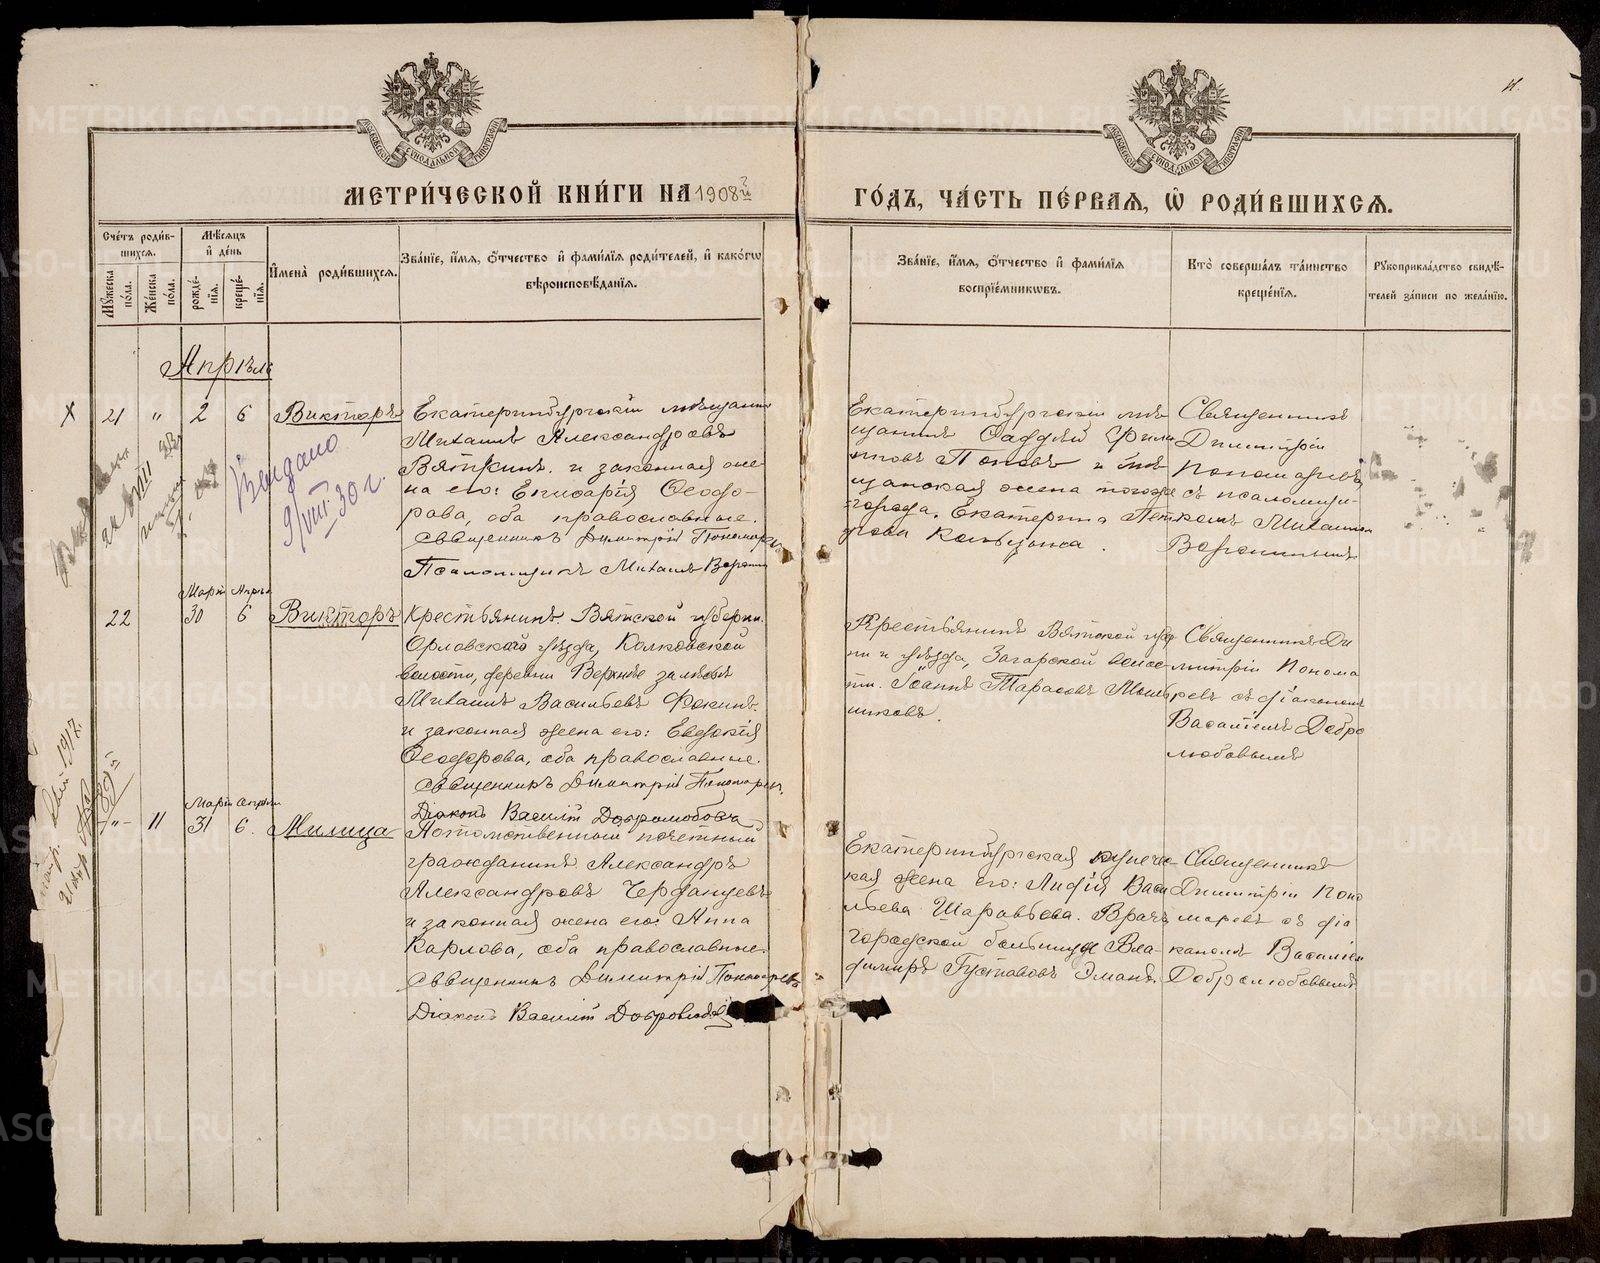 МЕТРИ́ЧЕСКОЙ КНИ́ГИ НА 1908 й
ГО́ДЪ, ЧА́СТЬ ПЕ́РВАЯ, Ѡ РОДИ́ВШИХСЯ.
Сче́тъ роди́вшихся.
Му́жеска по́ла.
Же́нска по́ла.
Мѣ́сяцъ и де́нь
рожде́нїя.
креще́нїя.
Имена̀ роди́вшихся.
Зва́нїе, и́мя, о́тчество и фами́лїя роди́телей, и како́гѡ
вѣроисповѣ́данїя.
Зва́нїе, и́мя, о́тчество и фами́лїя
воспрїе́мникѡвъ.
Кто̀ соверша́лъ та́инство
креще́нїя.
Рꙋкоприкла́дство свидѣ́-
телей за́писи по жела́нїю.
Апрѣль
21 " 2 6 Викторъ
Екатеринбургскій мѣщанинъ
Михаилъ Александровъ
Вяткинъ и законная же
на его: Елисавѳія Ѳеодо-
рова, оба православные.
Священникъ Димитрій Пономаревъ
Псаломщикъ Михаилъ
Выдано
9/VIII 30 г.
Екатеринбургскій мѣ
щанинъ Ѳаддей Фили
пповъ Поповъ и мѣ
щанская жена тогоже
города, Екатерина Пет
рова
Священникъ
Димитрій
Пономаревъ
съ псаломщи-
комъ Михаиломъ
Мартъ Апрѣль
22 30 6 Викторъ
Крестьянинъ Вятской губерніи
Орловскаго уѣзда,
волости, деревни
Михаилъ Васильевъ Фокинъ
и законная жена его: Евдокія
Ѳеодорова, оба православные.
Священникъ Димитрій Пономаревъ.
Діаконъ Василій Добролюбовъ
Крестьянинъ Вятской губер
ніи и уѣзда, Загарской волос
ти. Іоаннъ Тарасовъ
никовъ.
Священникъ Ди
митрій Понома
ревъ съ діакономъ
Василіемъ Добро
любовымъ
Мартъ Апрѣль
-"- 11 31 6. Милица
Потомственный почетный
гражданинъ Александръ
Александровъ Черданцевъ
и законная жена его: Анна
Карлова, оба православные.
Священникъ Димитрій Пономаревъ
Діаконъ Василій Добролюбовъ
Екатеринбургская купечес
кая жена его: Лидія Васи
льева Шаравьева. Врачъ
городской больницы Вла-
диміръ Густавовъ Эманъ.
Священникъ
Димитрій Поно
маревъ съ діа
кономъ Василіемъ
Добролюбовымъ.
METRIKI.GASO-URAL.RU